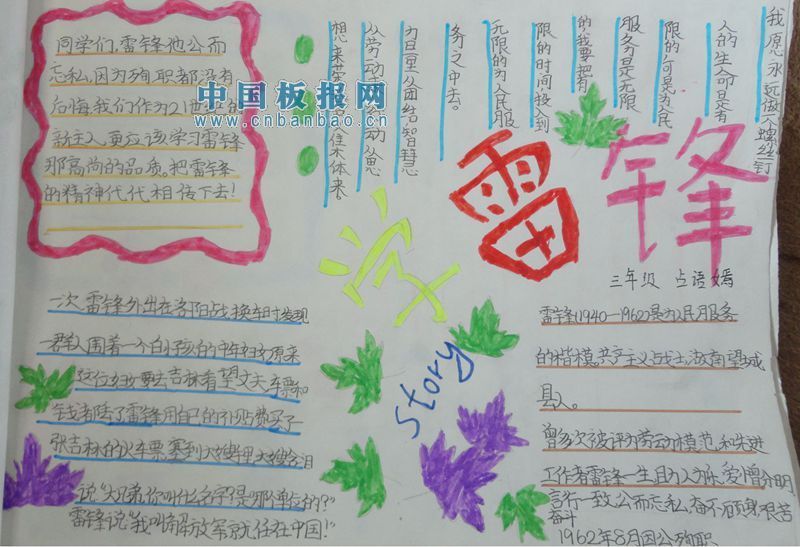 同学们,雷锋他公而
忘私,因为殉职都没有
后悔,我们作为21世纪的
新主人,更应该学习雷锋
那高尚的品质。把雷锋
的精神代代相传下去!
中国板报网
www.cnbanbao.cn
我愿永远做个螺丝钉
人的生命是有
限的,可是为人民
服务是无限
的,我要把有
限的时间,投入到
无限的为人民服
务之中去。
力量从团结来,智慧
从劳动来,行动从思
想来,荣誉从集体来
学雷锋
Story
三年级
一次雷锋外出在沈阳站换车时发现
一群人围着一个
这位妇女要去吉林看望丈夫,车票和
钱都丢了雷锋用自己的津贴费买了一
张去吉林的火车票塞到大嫂手里大嫂含泪
说“大兄弟,你叫什么名字,是哪个单位的?”
雷锋说“我叫解放军,就住在中国!”
雷锋(1940—1962)是为人民服务
的楷模,共产主义战士,湖南望城
县人。
曾多次被评为劳动模范,和先进
工作者雷锋一生助人为乐,爱憎分明
言行一致,公而忘私,奋不顾身,艰苦
奋斗
1962年8月因公殉职